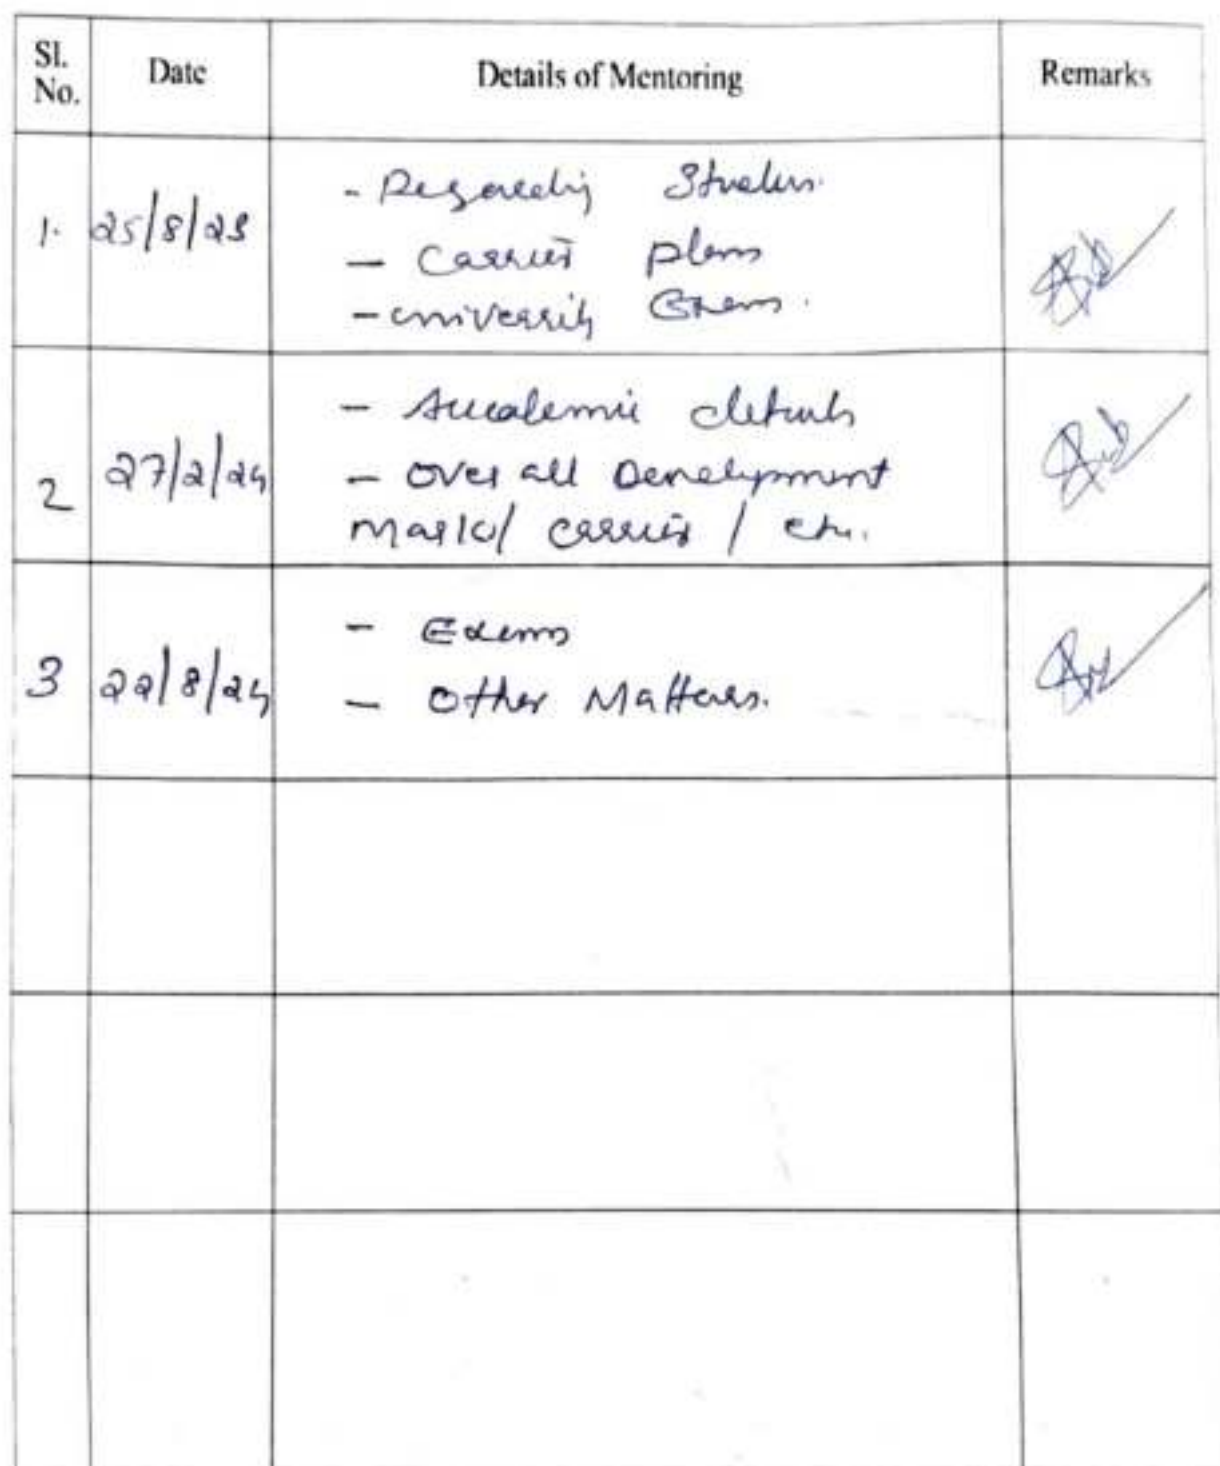 Sl. No. Date Details of Mentoring Remarks
1. 25/8/23 - Regarding Studies.
- Carrier plans
- university Exams.
2 27/2/24 - Accademic details
- over all Development
Marks/ carrier / etc.
3 22/8/24 - Exams
- Other Matters.